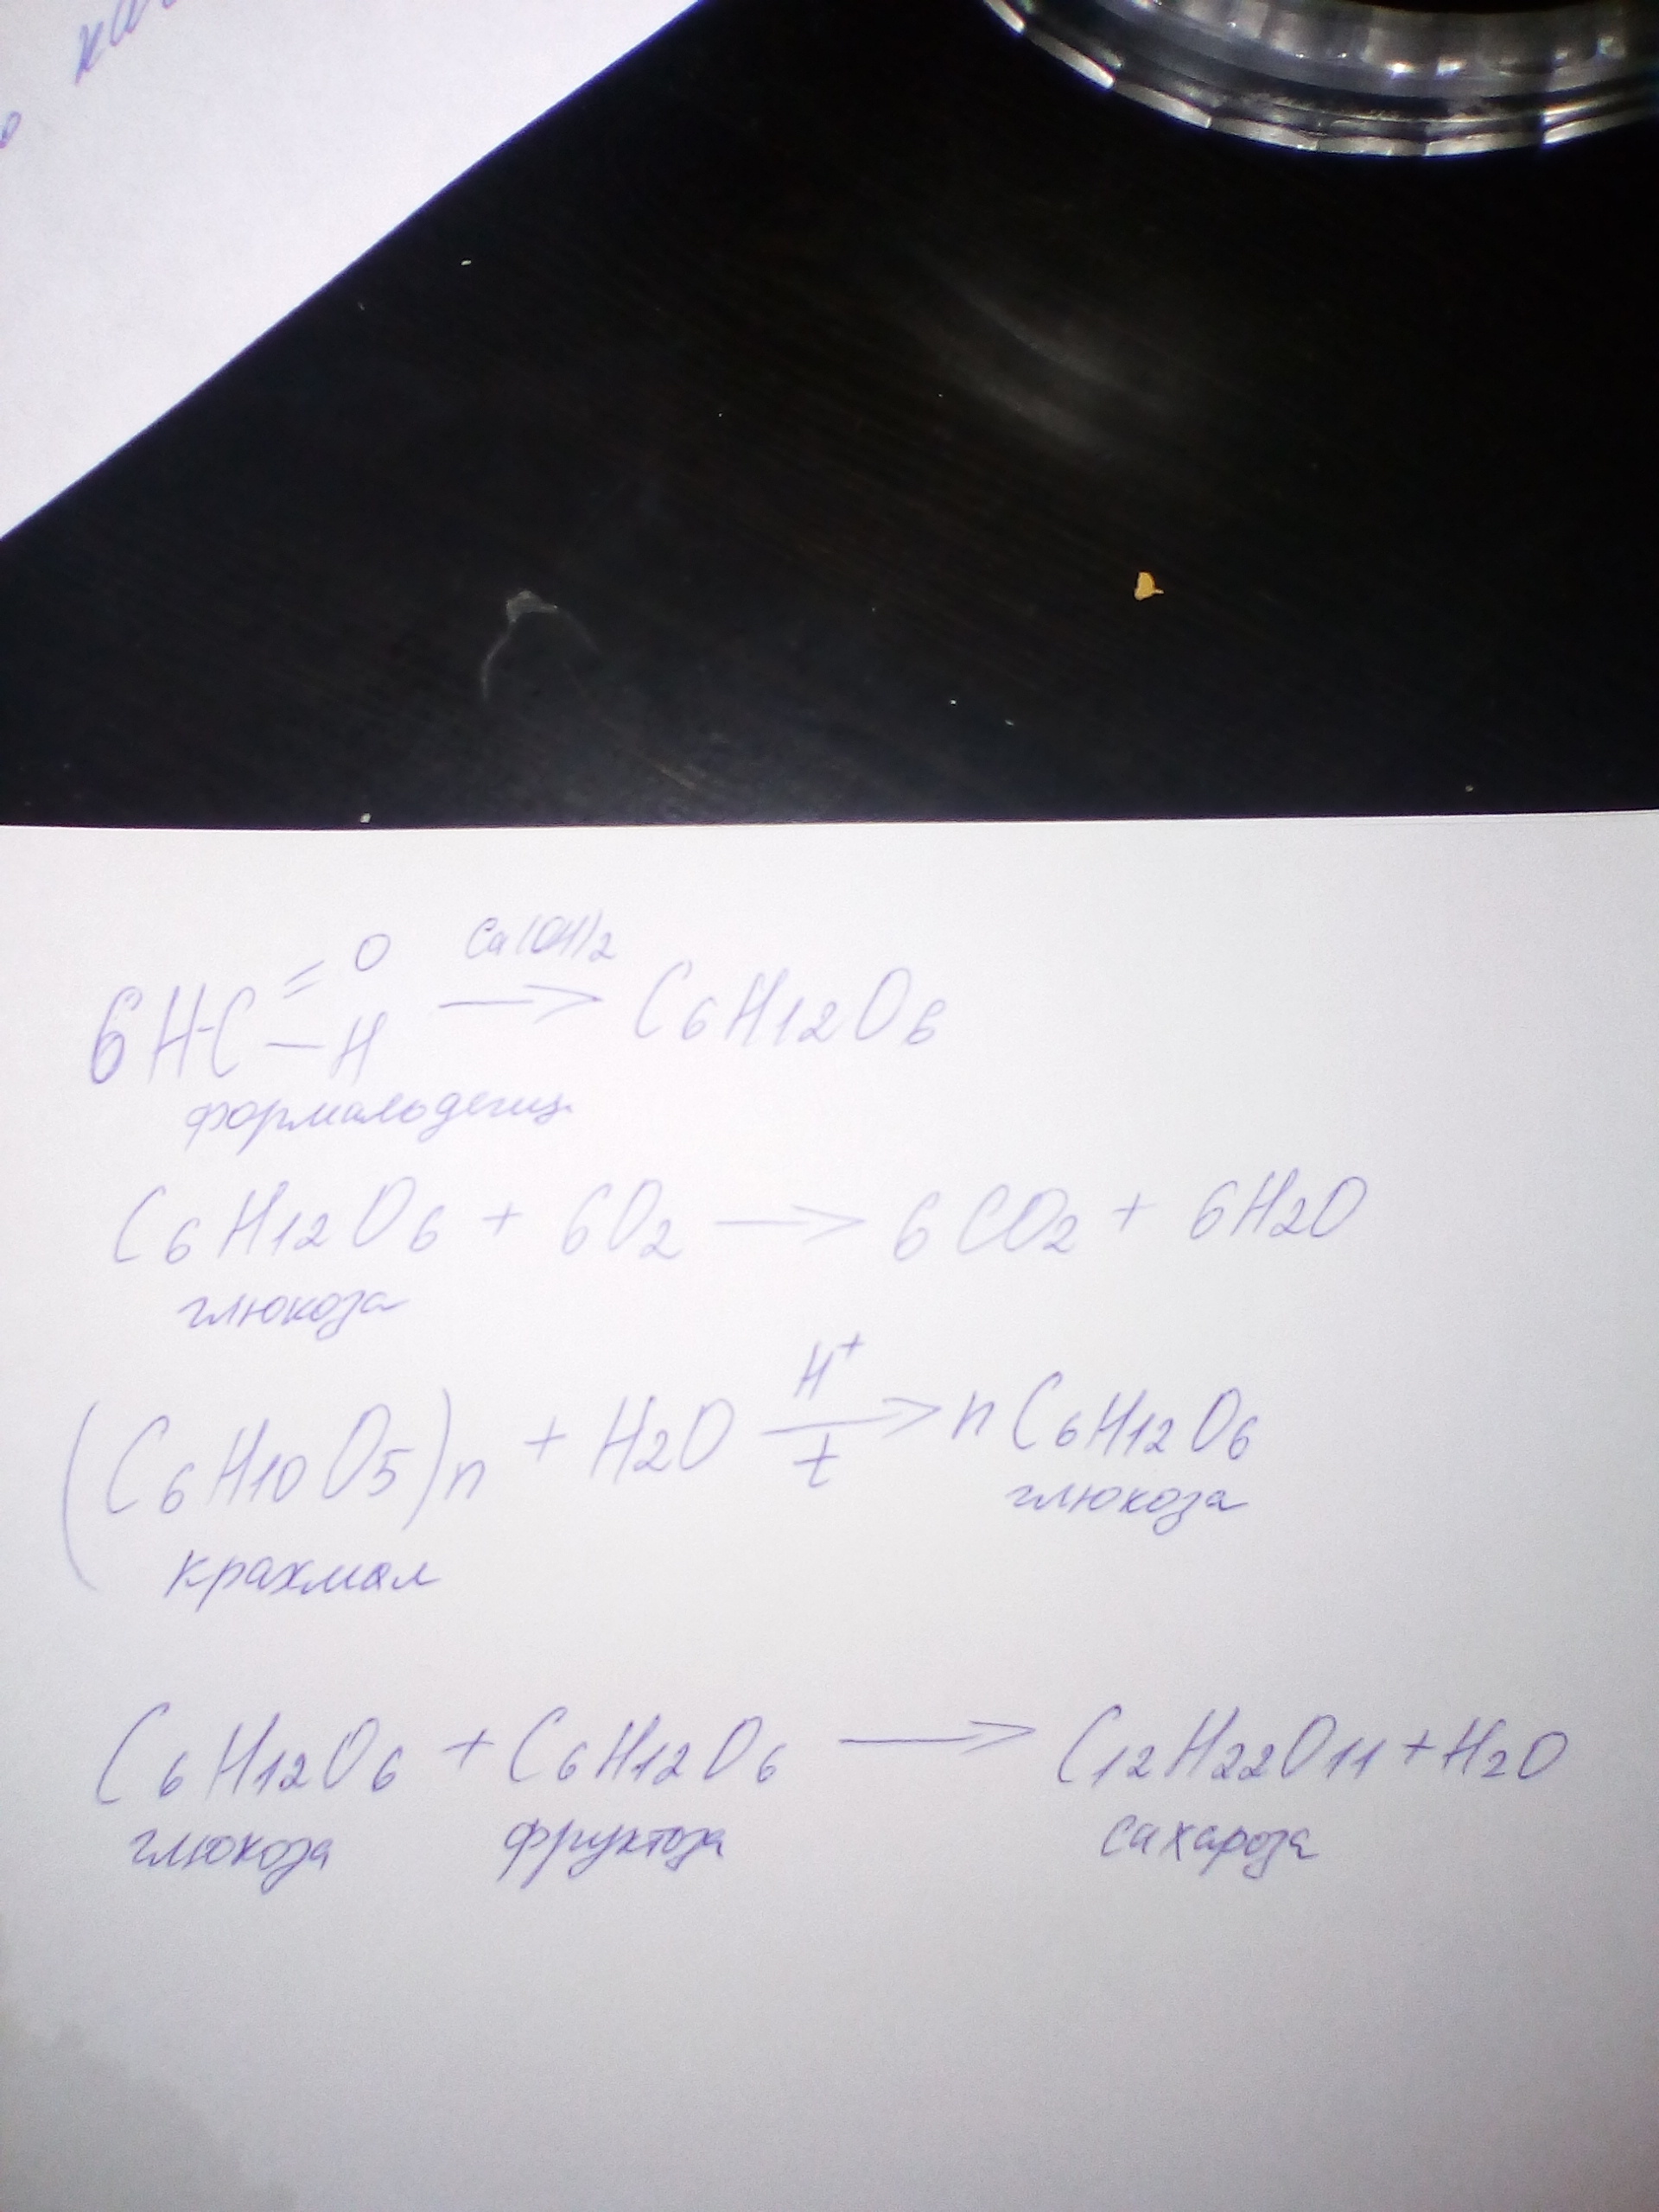 Ca(OH)2
6H-C =O -H → C6H12O6
формальдегид
C6H12O6 + 6O2 → 6CO2 + 6H2O
глюкоза
H+
(C6H10O5)n + H2O → n C6H12O6
t
крахмал глюкоза
C6H12O6 + C6H12O6 → C12H22O11 + H2O
глюкоза фруктоза сахароза